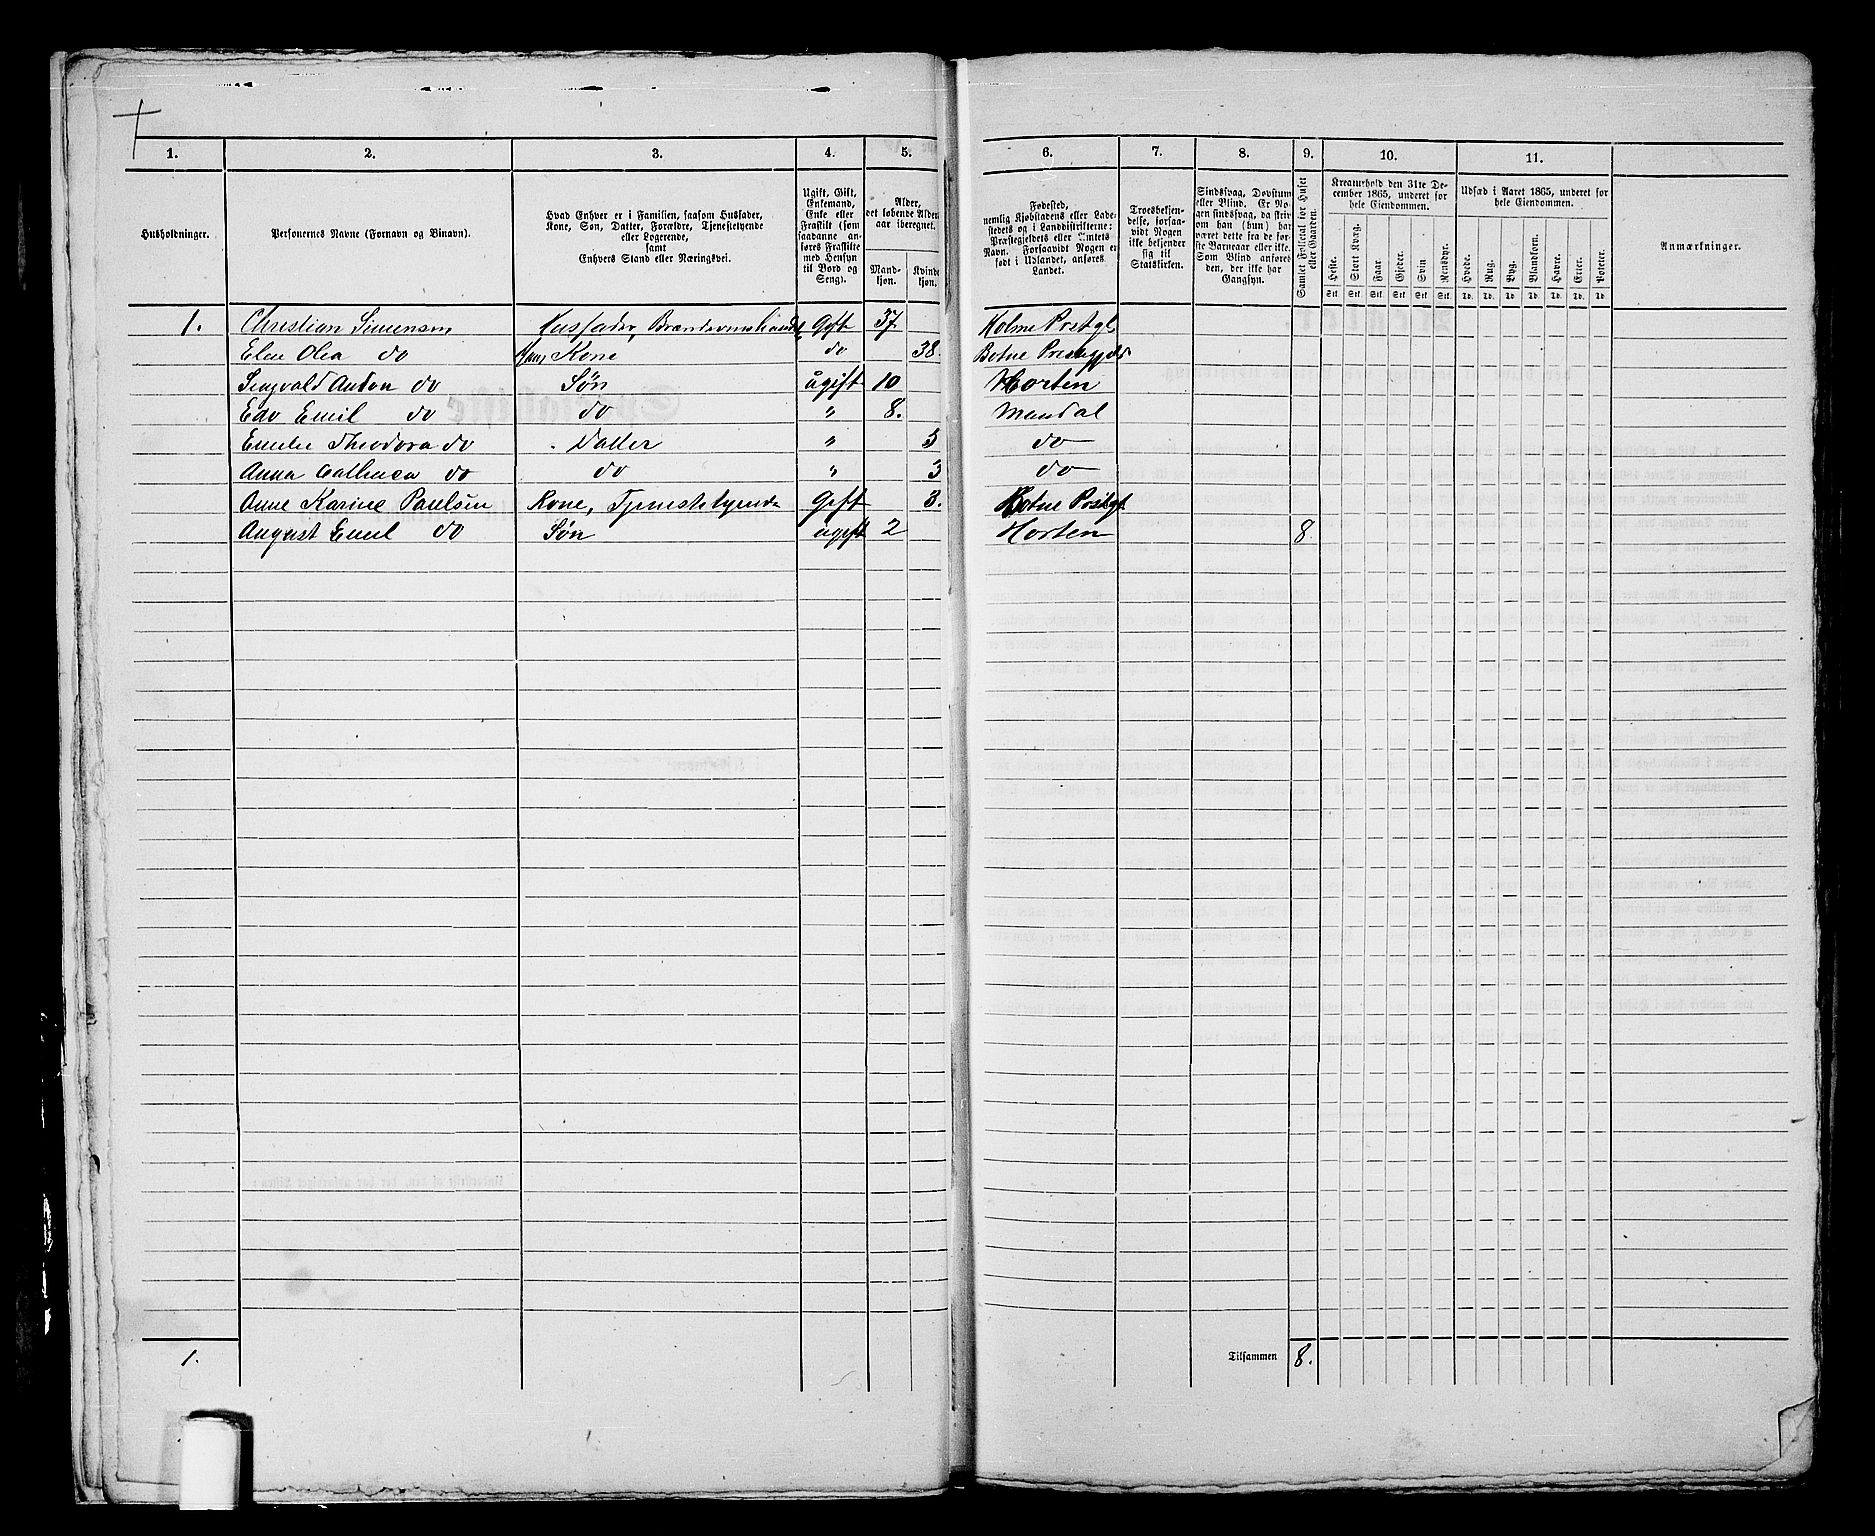 1. 2. 3. 4. 5. 6. 7. 8. 9. 10. 11.
Husholdninger.
Personernes Navne (Fornavn og Binavn).
Hvad Enhver er i Familien, saasom Husfader,
Kone, Søn, Datter, Forældre, Tjenestetyende
eller Logerende,
samt
Enhvers Stand eller Næringsvei.
Ugift, Gift,
Enkemand,
Enke eller
Fraskilt (som
saadanne an-
føres Fraskilte
med Hensyn
til Bord og
Seng).
Alder,
det løbende Alders-
aar iberegnet.
Mand-
kjøn.
Kvinde-
kjøn.
Fødested,
nemlig Kjøbstadens eller Lade-
stedets og i Landdistrikterne:
Præstegjeldets eller Amtets
Navn. Forsaavidt Nogen er
født i Udlandet, anføres
Landet.
Troesbekjen-
delse, forsaa-
vidt Nogen
ikke bekjender
sig til
Statskirken.
Sindssvag, Døvstum
eller Blind. Er No-
gen sindssvag, da skriv
om han (hun) har
været dette fra de før-
ste Barneaar eller ikke.
Som Blind anføres
den, der ikke har
Gangsyn.
Samlet Folketal for Huset
eller Gaarden.
Kreaturhold den 31te De-
cember 1865, underet for
hele Eiendommen.
Heste. Stort Kvæg. Faar Gjeder. Svin Rensdyr.
Stk. Stk. Stk. Stk. Stk. Stk.
Udsæd i Aaret 1865, underet for
hele Eiendommen.
Hvede. Rug. Byg. Blandkorn. Havre. Erter. Poteter.
Td. Td. Td. Td. Td. Td. Td.
Anmærkninger.
1. Christian Simensen Husfader, Brændevinshandl Gift 37 Holme Prstgl
Elen Olea do Hans Kone do 38. Botne Prestegjeld
Sengvald Anton do Søn ugift 10 Horten
Edv Emil do do " 8. Mandal
Emilie Theodora do Datter " 5 do
Anna Cathinca do do " 3 do
Anne Karine Paulsen Kone, Tjenestetyende Gift 3. Botne Prstgl
August Emil do Søn ugift 2 Horten 8
1. Tilsammen 8.